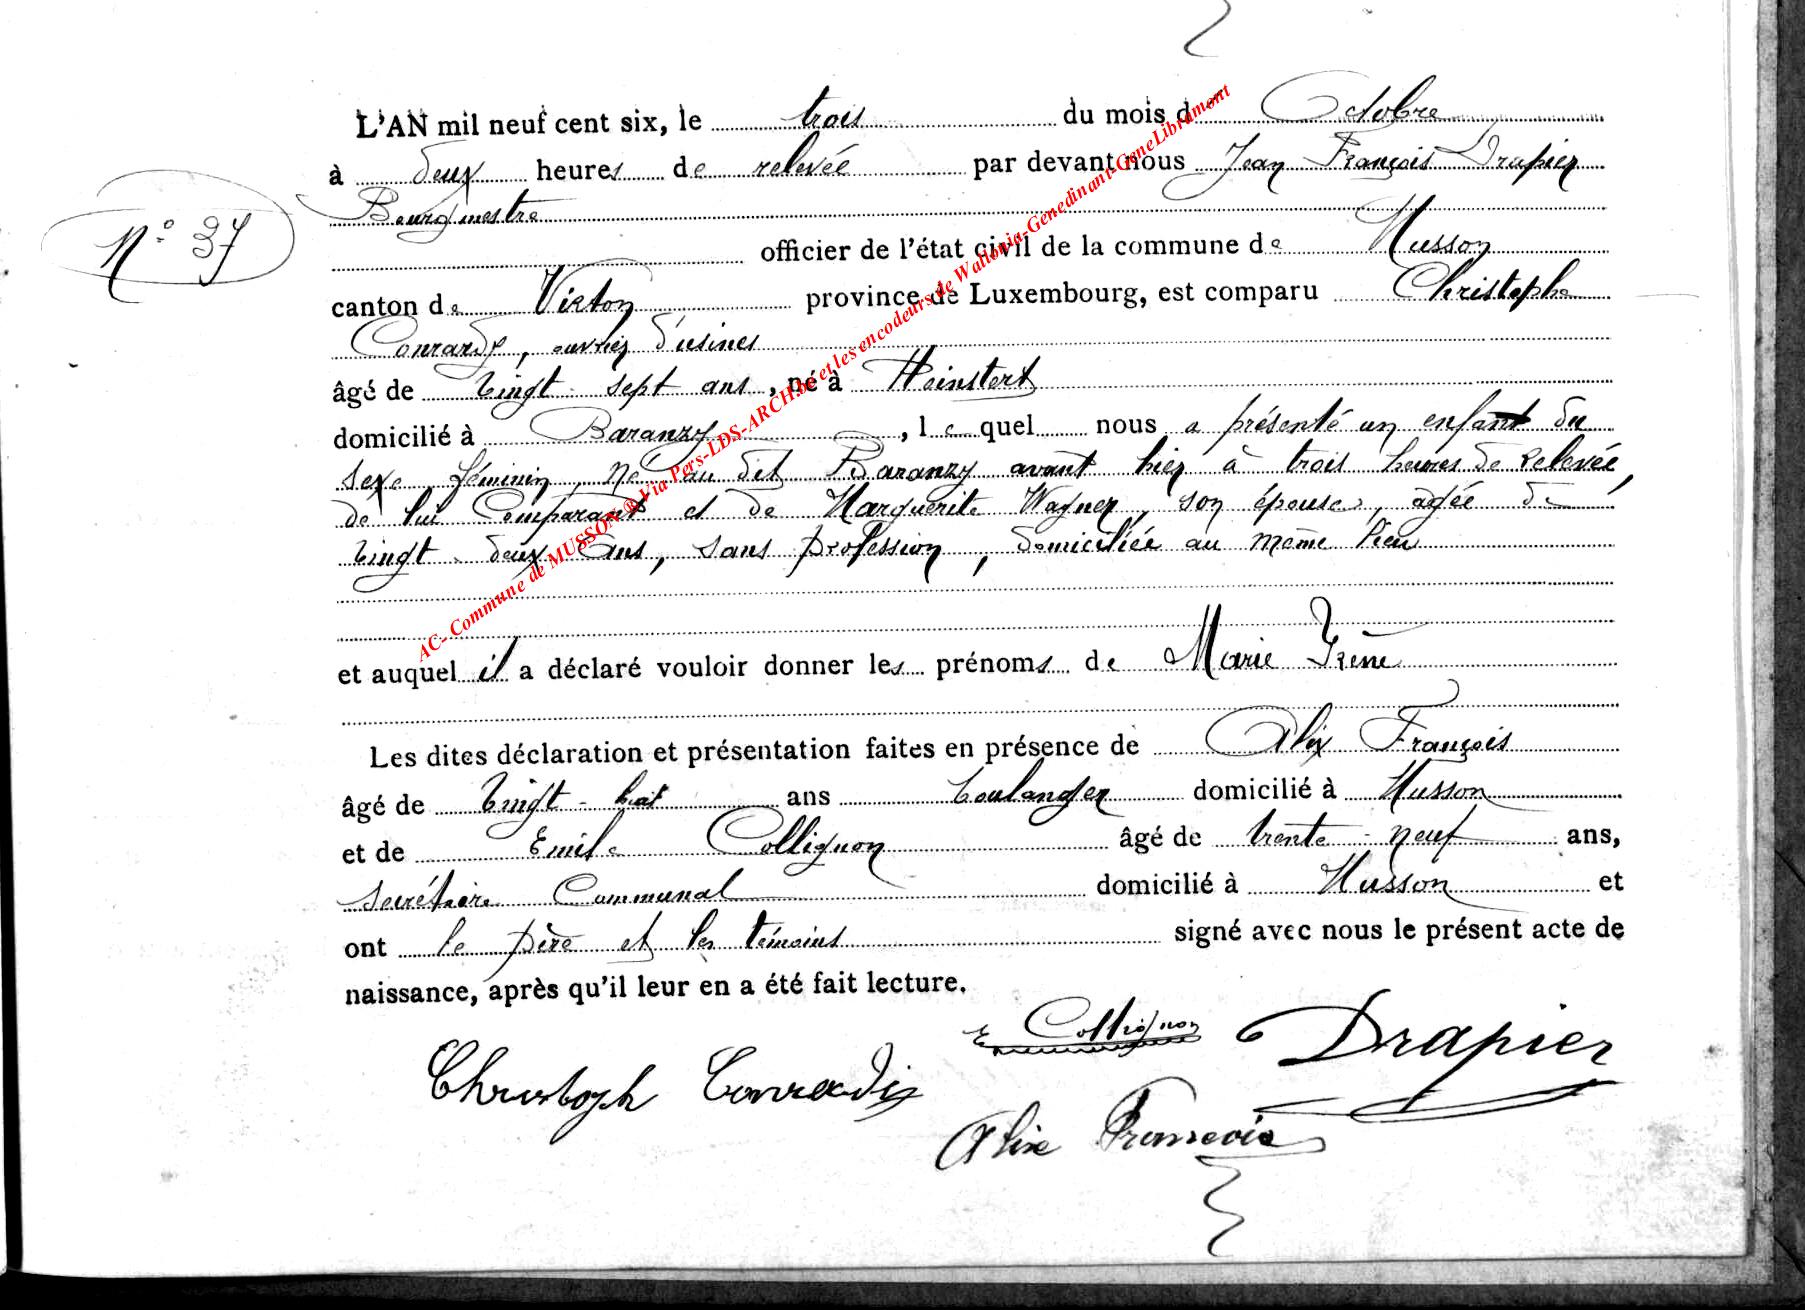 L'AN mil neuf cent six, le trois du mois d Octobre
à deux heures de relevée par devant nous Jean François Drapier
Bourgmestre
N° 37
officier de l'état civil de la commune de Musson
canton de Virton province de Luxembourg, est comparu Christophe
Conrardy, ouvrier d'usines
âgé de vingt-sept ans, né à Heinstert
domicilié à Baranzy, lequel nous a présenté un enfant du
sexe féminin, né au dit Baranzy avant hier à trois heures de relevée,
de lui Comparant et de Marguerite Wagner, son épouse, agée de
vingt-deux ans, sans profession, domiciliée au même lieu
et auquel il a déclaré vouloir donner les prénoms de Marie Irène
Les dites déclaration et présentation faites en présence de Alix François
âgé de vingt-huit ans boulanger domicilié à Musson
et de Emile Collignon âgé de trente-neuf ans,
secrétaire Communal domicilié à Musson et
ont le père et les témoins signé avec nous le présent acte de
naissance, après qu'il leur en a été fait lecture.
E Collignon Drapier
Christoph Conradis
Alix Francois
AC- Commune de MUSSON ® Via Pers-LDS-ARCH.be et les encodeurs de Wallonia-Genedinant-GeneLibramont